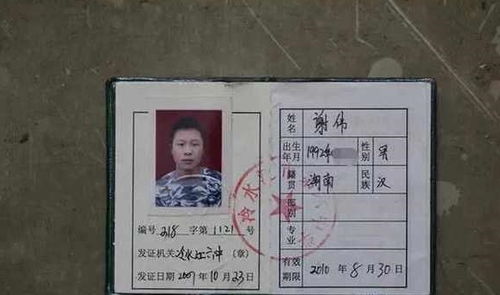 编号 218 字第 1121 号
发证机关 冷水江六中 (章)
发证日期 2007 年 10 月 23 日
姓名 谢伟
出生年月 1992年 性别 男
籍贯 湖南 民族 汉
班别
专业
有效期限 2010 年 8 月 30 日
冷水